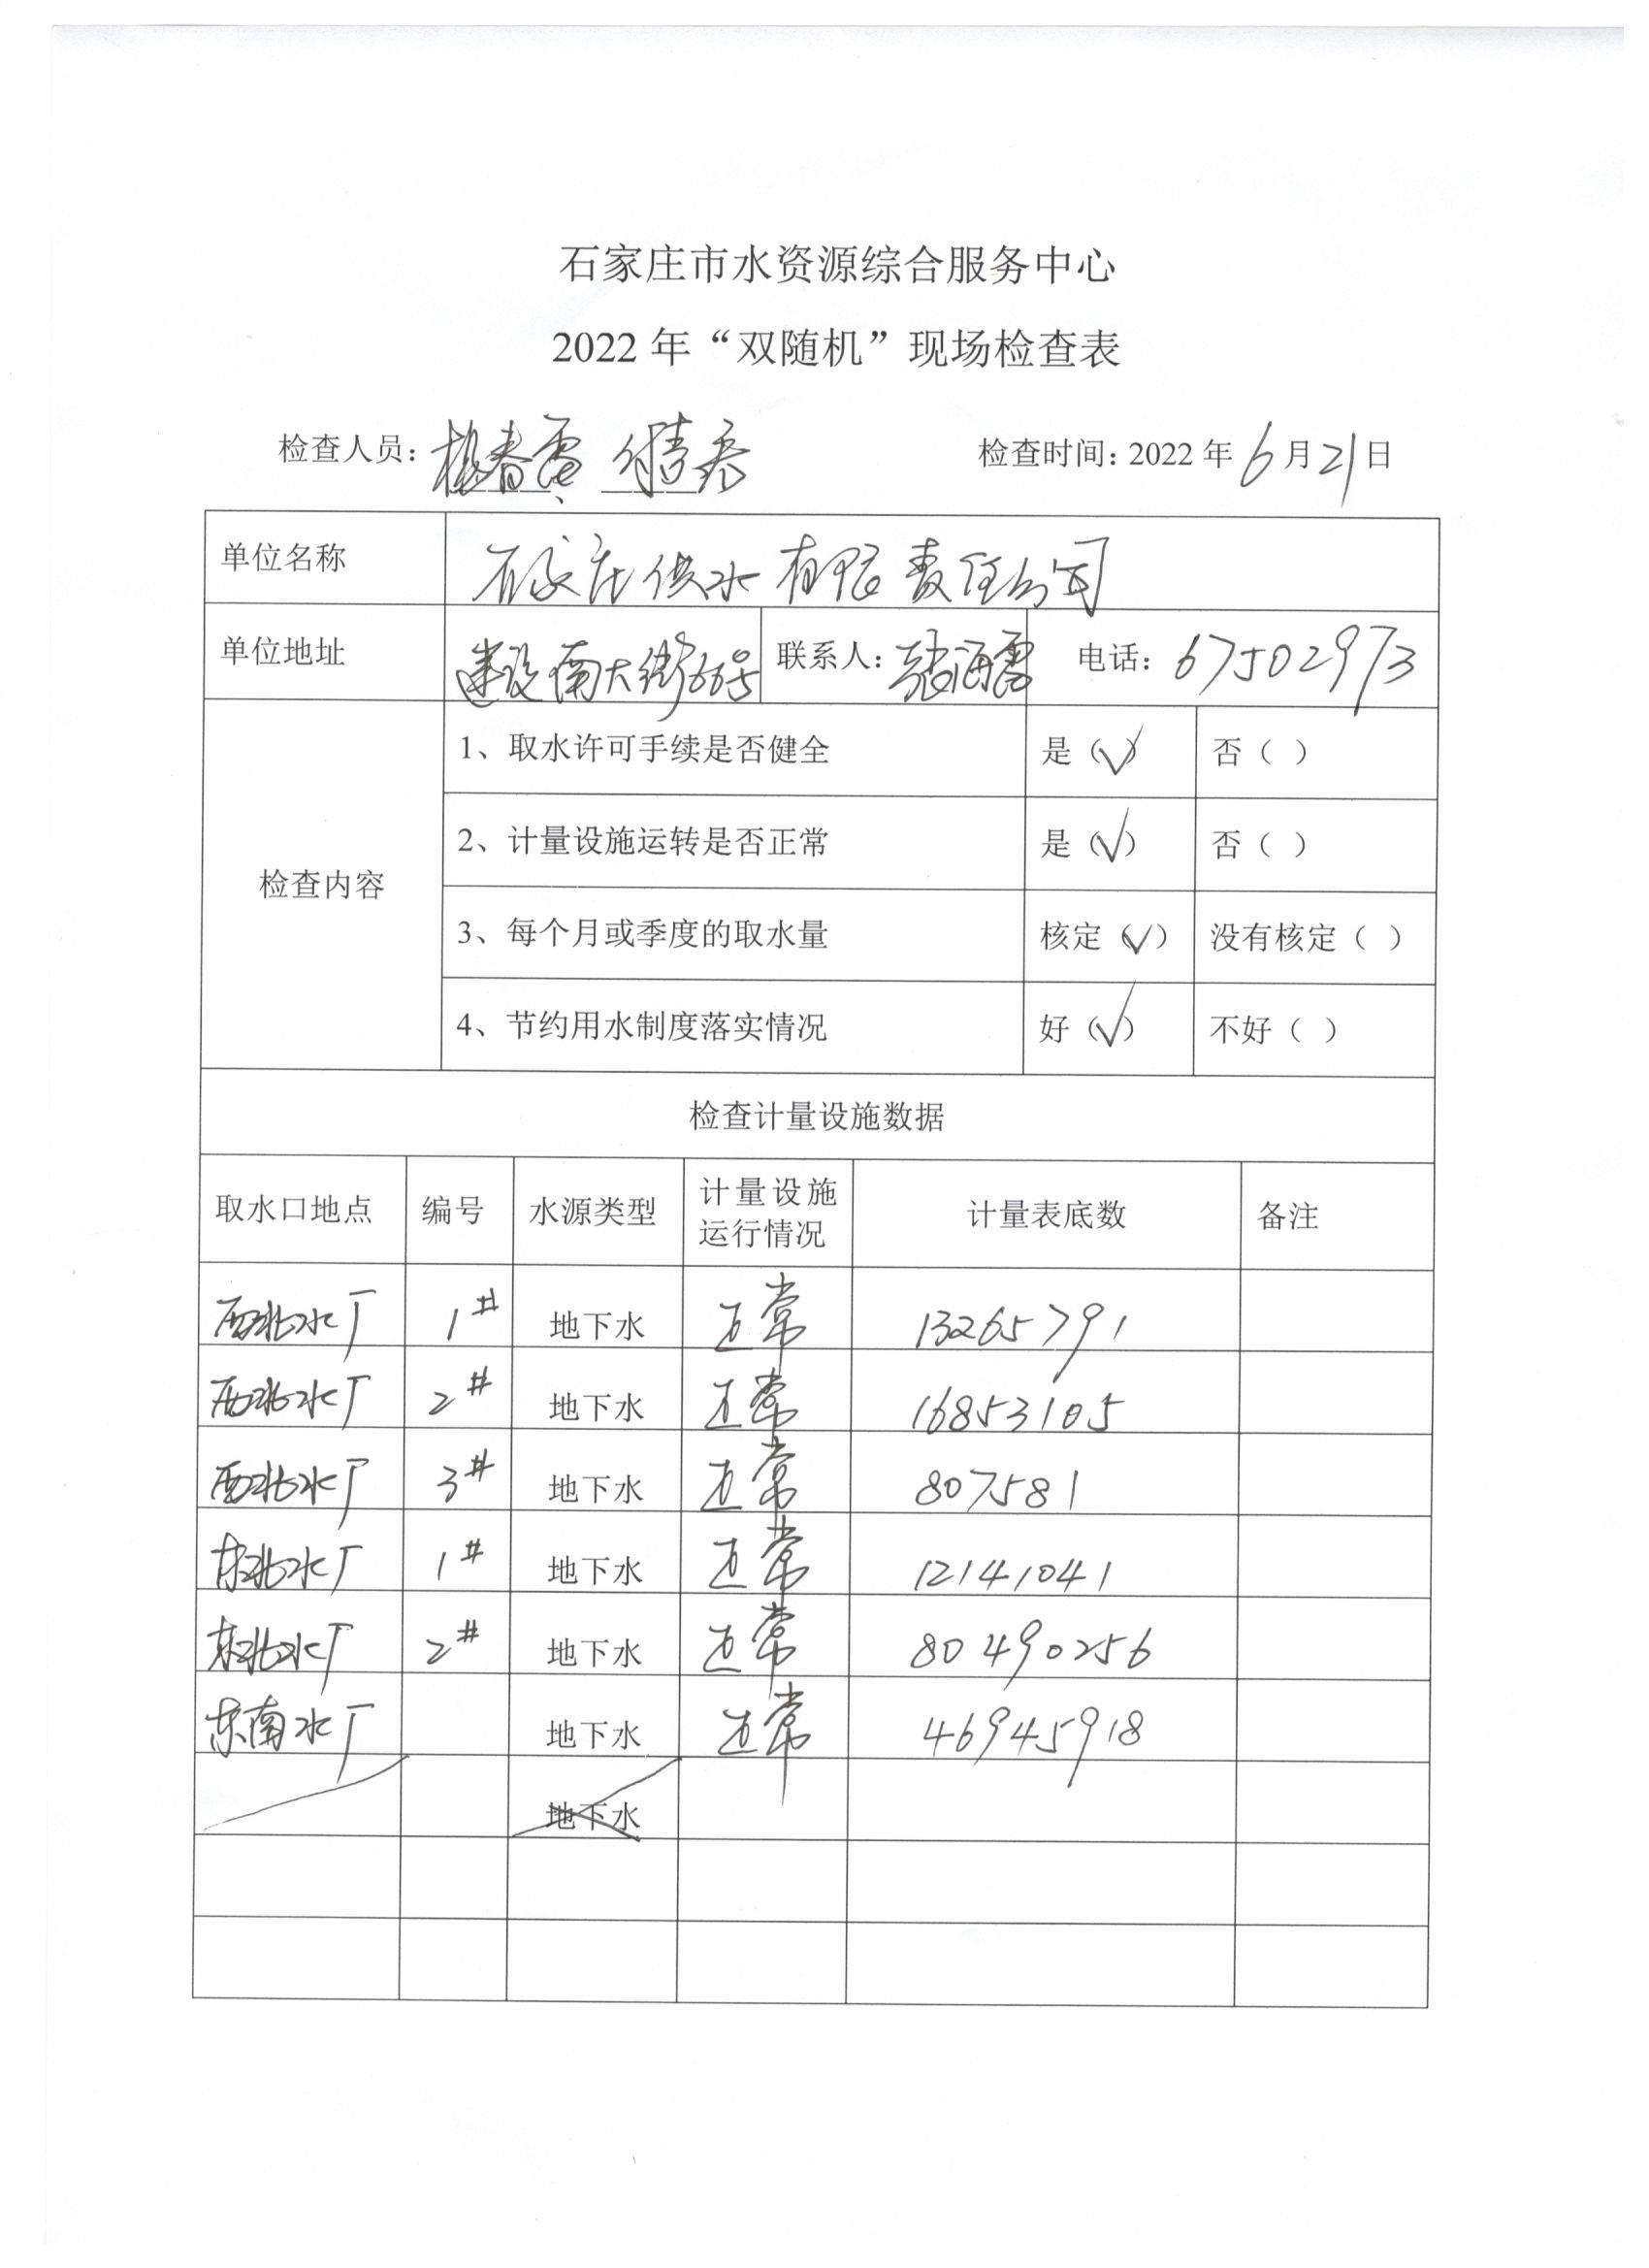 石家庄市水资源综合服务中心
2022 年“双随机”现场检查表
检查人员： 杨春雷 检查时间：2022 年 6 月 21 日
单位名称 石家庄供水有限责任公司
单位地址 建设南大街66号 联系人：张海霞 电话：67502973
检查内容
1、取水许可手续是否健全 是（√） 否（ ）
2、计量设施运转是否正常 是（√） 否（ ）
3、每个月或季度的取水量 核定（√） 没有核定（ ）
4、节约用水制度落实情况 好（√） 不好（ ）
检查计量设施数据
取水口地点 编号 水源类型 计量设施运行情况 计量表底数 备注
西北水厂 1# 地下水 正常 13265791
西北水厂 2# 地下水 正常 16853105
西北水厂 3# 地下水 正常 807581
东北水厂 1# 地下水 正常 12141041
东北水厂 2# 地下水 正常 80490256
东南水厂 地下水 正常 46945918
地下水